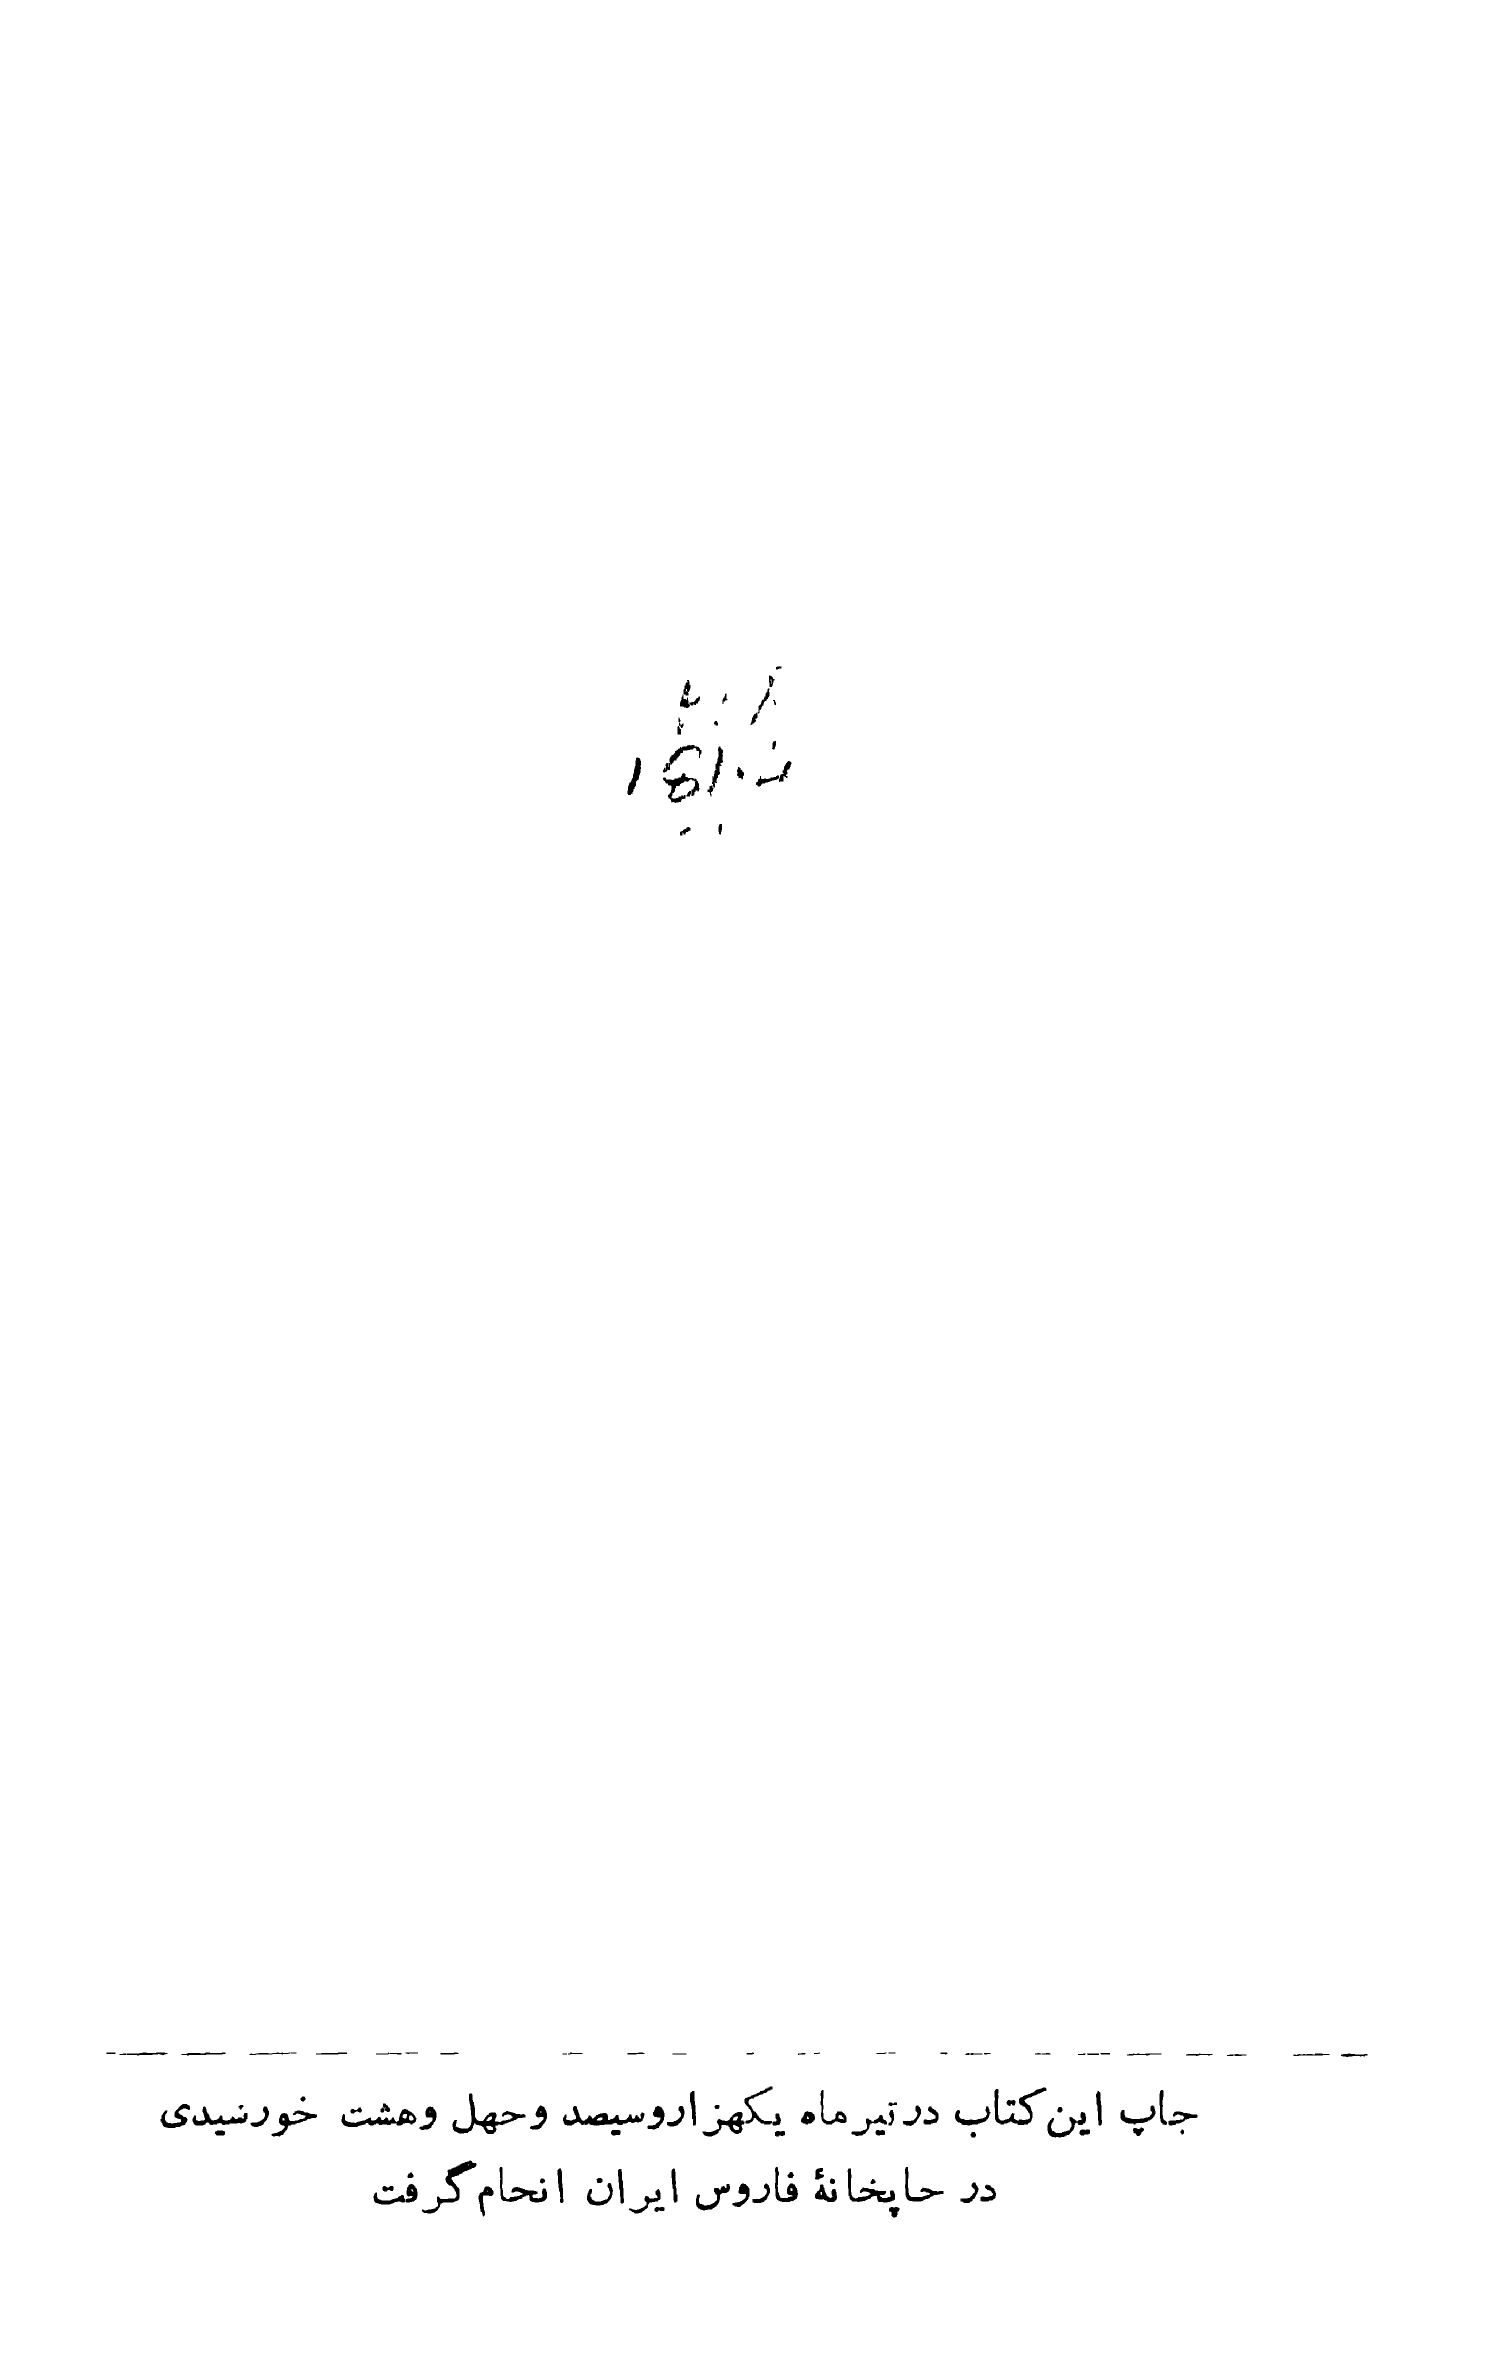 چاپ این کتاب در تیر ماه یکهزار و سیصد و چهل و هشت خورشیدی
در چاپخانهٔ فاروس ایران انجام گرفت